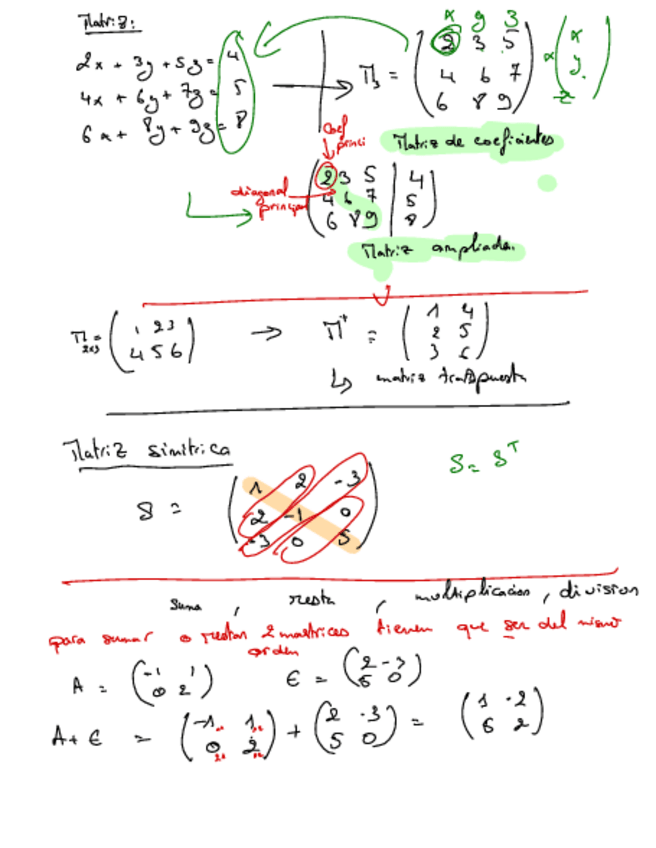 Matriz:
x y z
2x + 3y + 5z = 4
4x + 6y + 7z = 5
6x + 8y + 9z = 8
M₃ = ( 2 3 5
4 6 7
6 8 9 ) × ( x
y
z )
Matriz de coeficientes
coef
princi
diagonal
principal
( 2 3 5 | 4
4 6 7 | 5
6 8 9 | 8 )
Matriz ampliada.
M₂ₓ₃ = ( 1 2 3
4 5 6 ) → Mᵗ = ( 1 4
2 5
3 6 )
↳ matriz traspuesta
Matriz simitrica
S = Sᵀ
S = ( 1 2 -3
2 -1 0
-3 0 5 )
suma , resta , multiplicacion , division
para sumar o restar 2 mastrices tienen que ser del mismo
orden
A = ( -1 1
0 2 ) E = ( 2 -3
5 0 )
A + E = ( -1 1
0 2 ) + ( 2 -3
5 0 ) = ( 1 -2
5 2 )